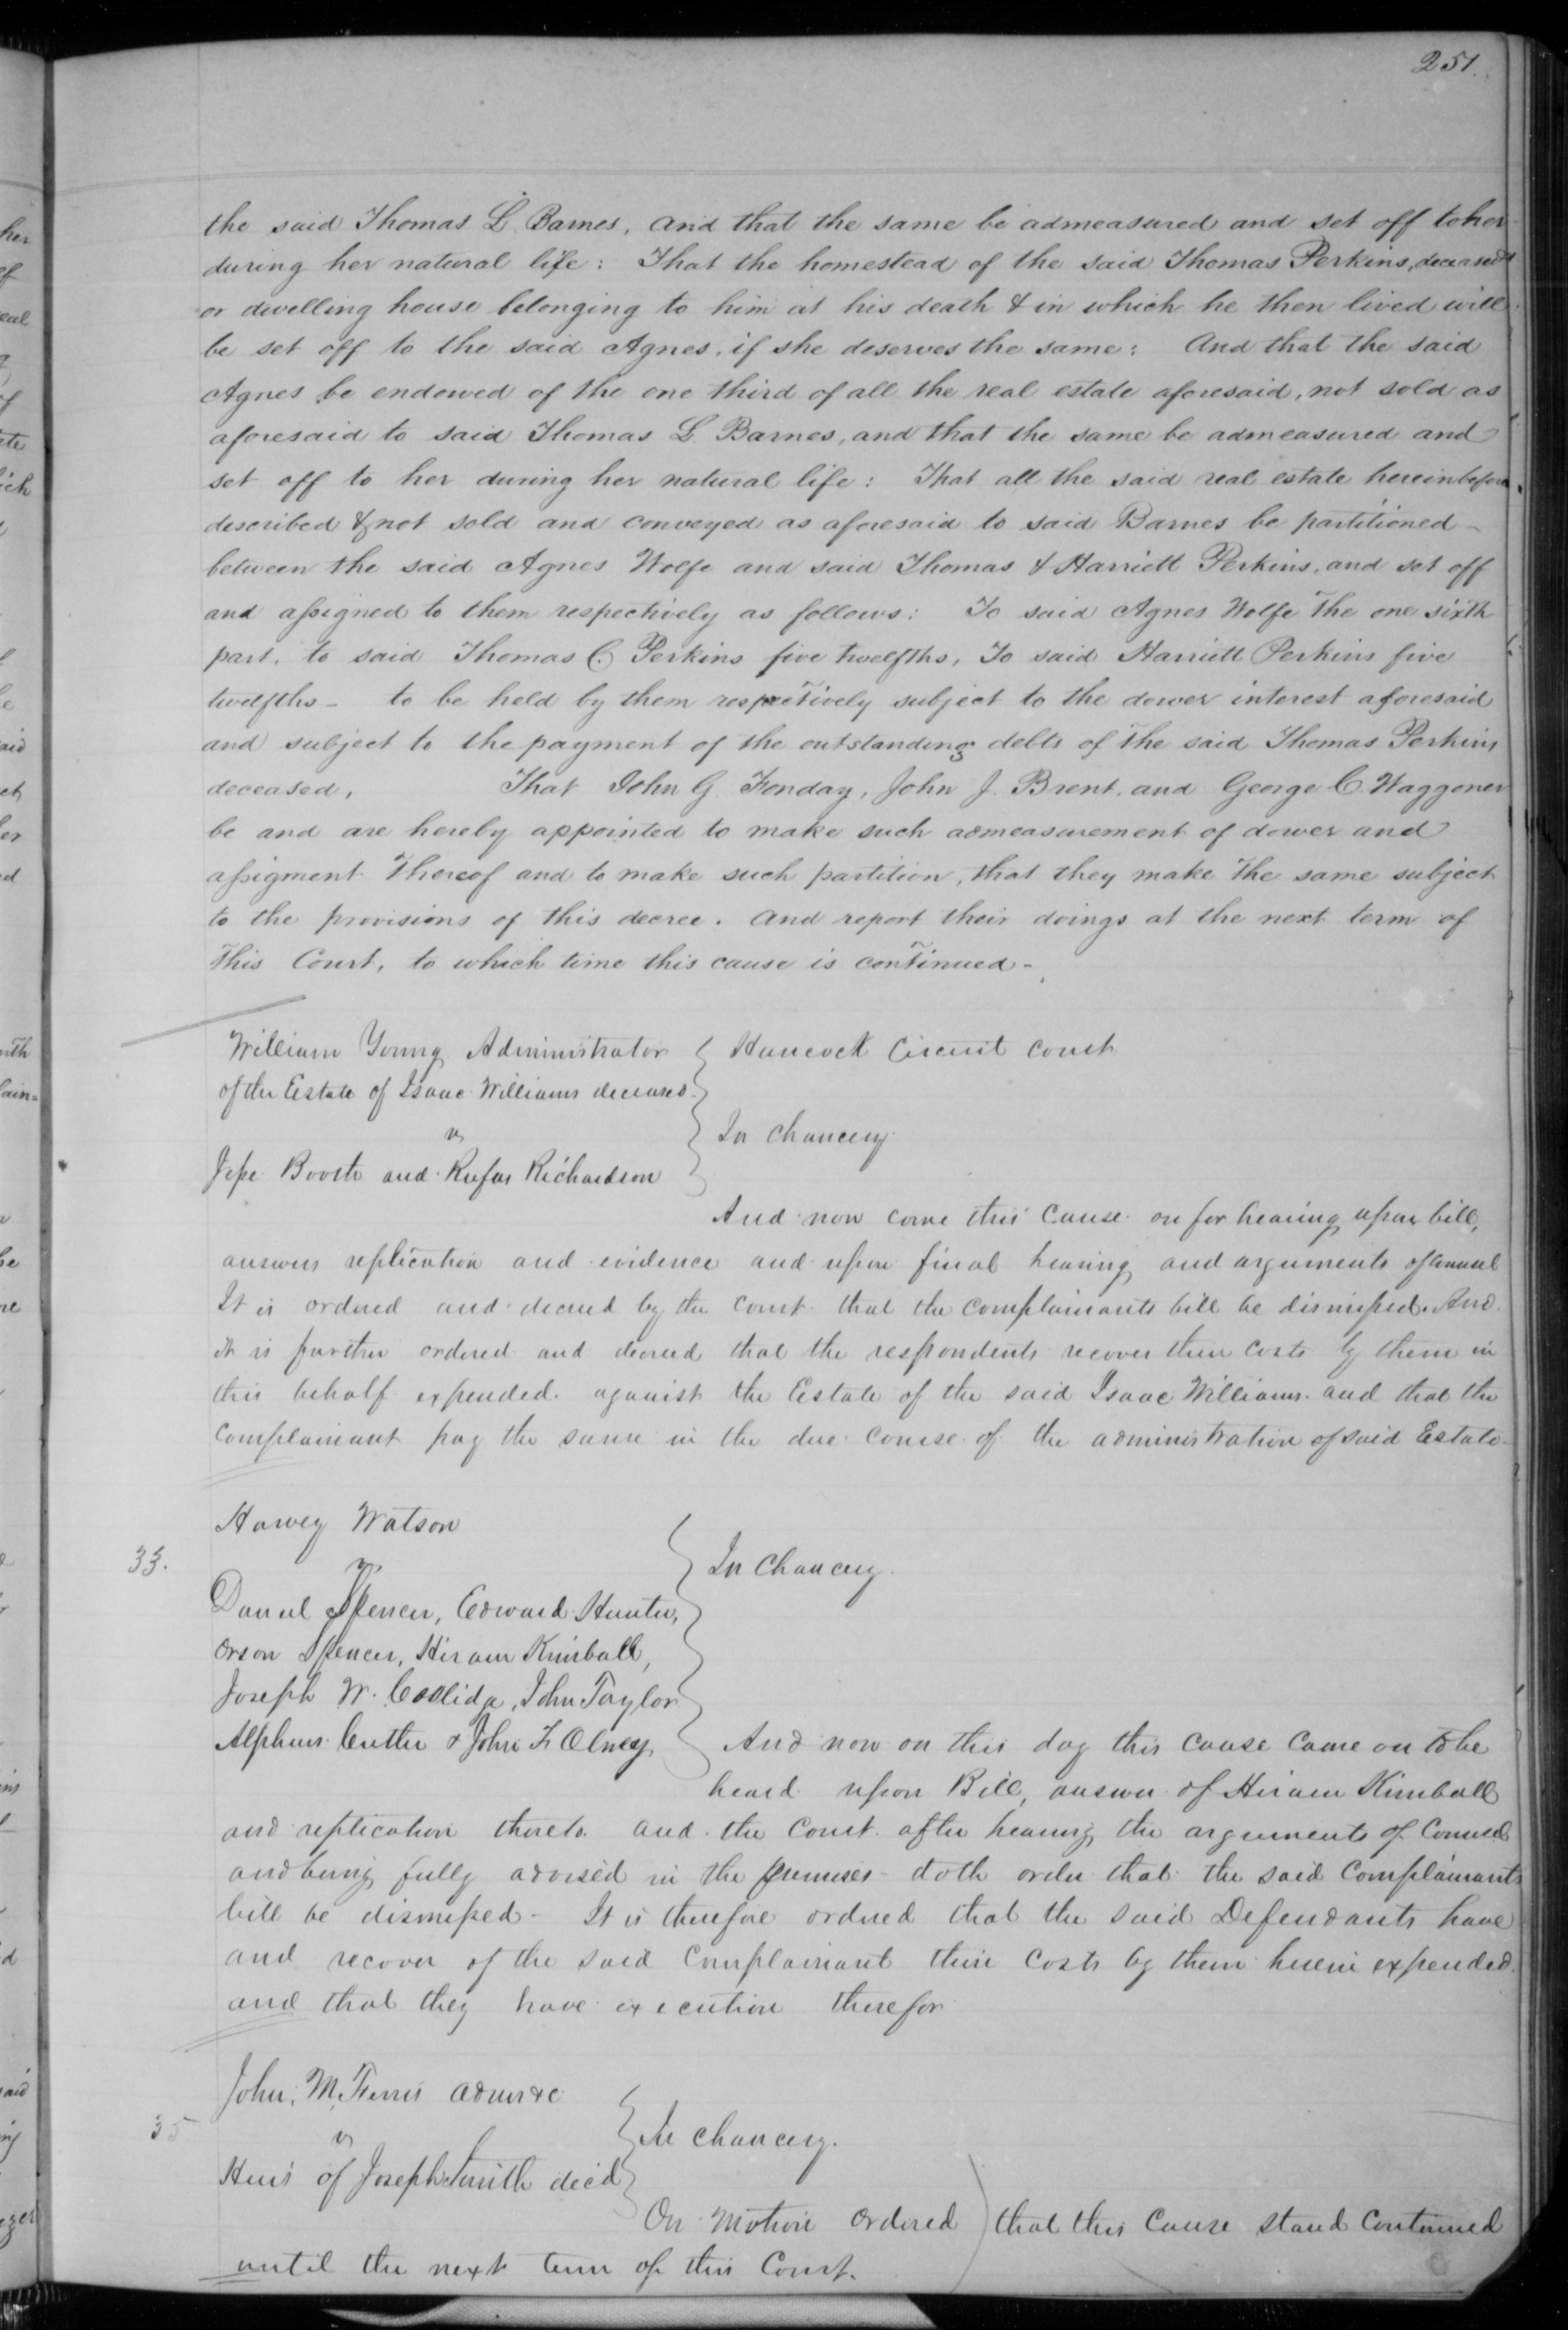 251.
the said Thomas L. Barnes, and that the same be admeasured and set off to her
during her natural life: That the homestead of the said Thomas Perkins, deceased
or dwelling house belonging to him at his death & in which he then lived will
be set off to the said Agnes, if she deserves the same: And that the said
Agnes be endowed of the one third of all the real estate aforesaid, not sold as
aforesaid to said Thomas L. Barnes, and that the same be admeasured and
set off to her during her natural life: That all the said real estate hereinbefore
described & not sold and conveyed as aforesaid to said Barnes be partitioned -
between the said Agnes Wolfe and said Thomas & Harriett Perkins, and set off
and assigned to them respectively as follows: To said Agnes Wolfe the one sixth
part, to said Thomas C. Perkins five twelfths, To said Harriett Perkins five
twelfths - to be held by them respectively subject to the dower interest aforesaid
and subject to the payment of the outstanding debts of the said Thomas Perkins
deceased, That John G. Fonday, John J. Brent, and George C. Waggoner
be and are hereby appointed to make such admeasurement of dower and
assigment thereof and to make such partition, that they make the same subject
to the provisions of this decree. And report their doings at the next term of
this Court, to which time this cause is continued -
William Young Administrator Hancock Circuit Court
of the Estate of Isaac Williams deceased
vs In Chancery
Jesse Booth and Rufus Richardson
And now come this cause on for hearing upon bill,
answers replication and evidence and upon final hearing and arguments of Counsel
It is ordered and decreed by the court that the complainants bill be dismissed. And
it is further ordered and decreed that the respondents recover their costs by them in
this behalf expended against the Estate of the said Isaac Williams and that the
complainant pay the same in the due course of the administration of said Estate -
Harvey Watson
33. vs In Chancery.
Daniel Spencer, Edward Hunter,
Orson Spencer, Hiram Kimball,
Joseph W. Coolidge, John Taylor
Alpheus Cutler & John F. Olney And now on this day this cause came on to be
heard upon Bill, answer of Hiram Kimball
and replication thereto and the Court after hearing the arguments of Counsel
and being fully advised in the premises - doth order that the said Complainants
bill be dismissed - It is therefore ordered that the said Defendants have
and recover of the said Complainant their Costs by them herein expended.
and that they have execution therefor
John M. Ferris admr &c
35 vs In Chancery.
Heirs of Joseph Smith dec'd
On Motion Ordered that this Cause stand Continued
until the next term of this Court.